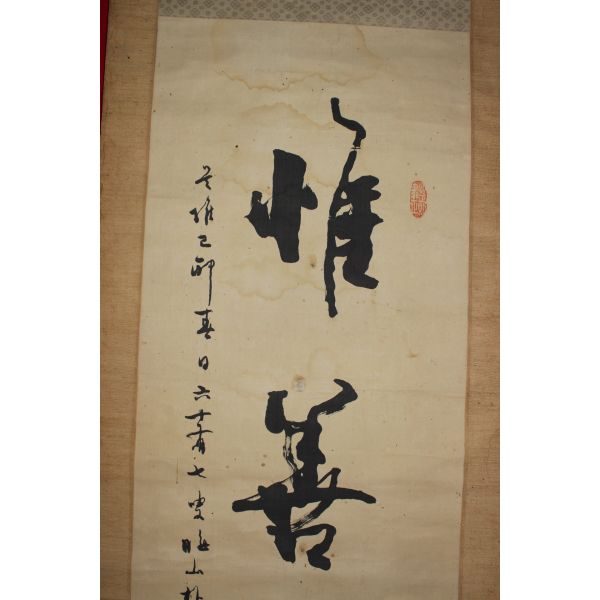 惟善
維己卯春日六十有七叟晦山